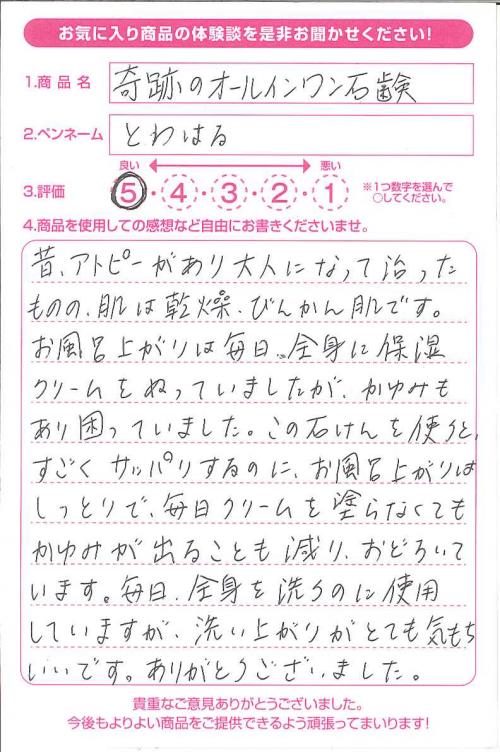 お気に入り商品の体験談を是非お聞かせください!
1.商品名 奇跡のオールインワン石鹸
2.ペンネーム とわはる
良い 悪い
3.評価 5・4・3・2・1 ※1つ数字を選んで
○してください。
4.商品を使用しての感想など自由にお書きくださいませ。
昔、アトピーがあり大人になって治った
ものの、肌は乾燥、びんかん肌です。
お風呂上がりは毎日、全身に保湿
クリームをぬっていましたが、かゆみも
あり困っていました。この石けんを使うと、
すごくサッパリするのに、お風呂上がりは
しっとりで、毎日クリームを塗らなくても
かゆみが出ることも減り、おどろいて
います。毎日、全身を洗うのに使用
していますが、洗い上がりがとても気もち
いいです。ありがとうございました。
貴重なご意見ありがとうございました。
今後もよりよい商品をご提供できるよう頑張ってまいります!